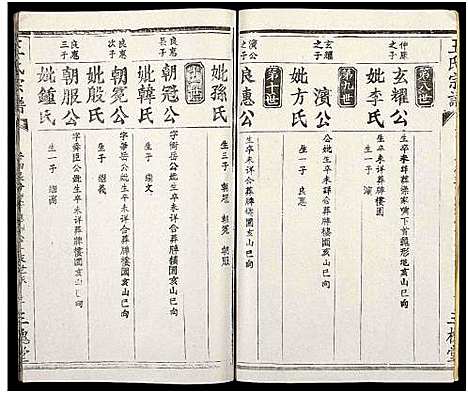 王氏宗譜
第八世
仲舉之子
玄耀公
妣李氏
生卒未詳合葬
首龜形地亥山巳向
生一子 濱
第九世
玄耀之子
濱公
妣方氏
公妣生卒未詳合葬牌樓園亥山巳向
生一子 良惠
第十世
濱公之子
良惠公
生卒未詳葬牌樓園亥山巳向
三槐堂
妣孫氏
生三子 朝冠 朝冕 朝服
良惠長子
朝冠公
妣韓氏
字衡岳公妣生卒未詳合葬牌樓園亥山巳向
生一子 繼文
良惠次子
朝冕公
妣殷氏
字華岳公妣生卒未詳合葬牌樓園亥山巳向
生一子 繼義
良惠三子
朝服公
妣鍾氏
字舜臣公妣生卒未詳合葬牌樓園亥山巳向
生一子
王氏宗譜
三槐堂